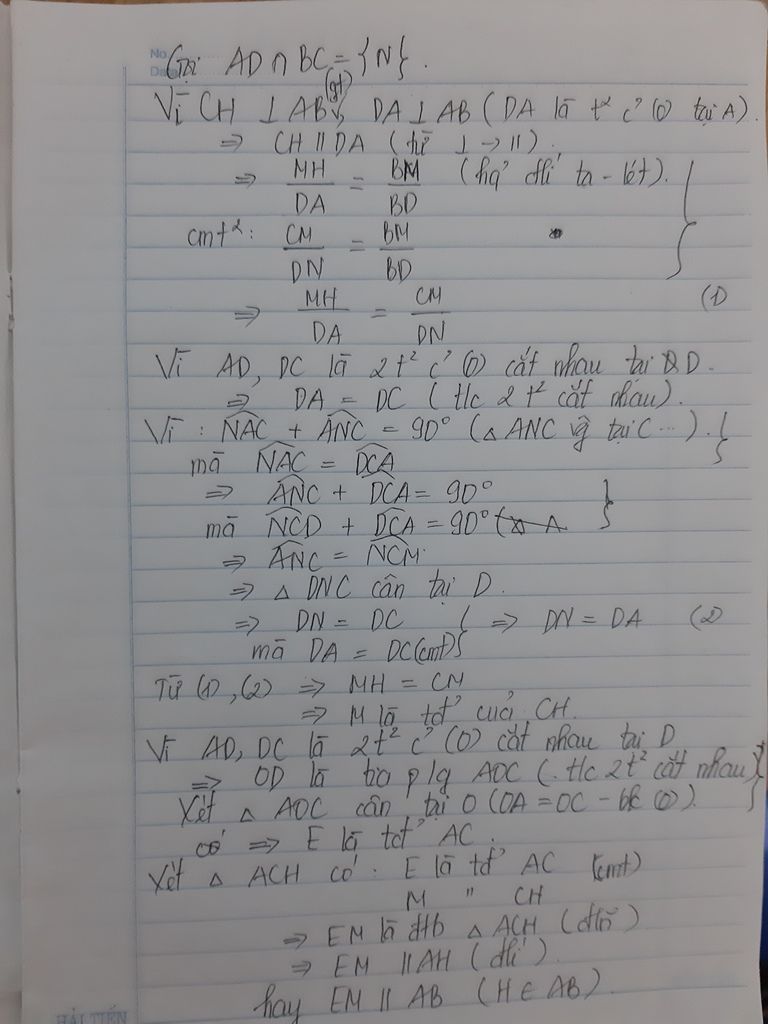 No.
Da
Gọi AD ∩ BC = {N}.
Vì CH ⊥ AB (gt), DA ⊥ AB (DA là t² c² (O) tại A).
⇒ CH // DA (từ ⊥ → //).
⇒ MH/DA = BM/BD (hq² đlí ta-lét).
cmt²: CM/DN = BM/BD
⇒ MH/DA = CM/DN (1)
Vì AD, DC là 2 t² c² (O) cắt nhau tại D.
⇒ DA = DC (t/c 2 t² cắt nhau).
Vì: NAC + ANC = 90° (△ ANC vg tại C ...).
mà NAC = DCA
⇒ ANC + DCA = 90°
mà NCD + DCA = 90°
⇒ ANC = NCM.
⇒ △ DNC cân tại D.
⇒ DN = DC } ⇒ DN = DA (2)
mà DA = DC (cmt)
Từ (1), (2) ⇒ MH = CM
⇒ M là tđ² của CH.
Vì AD, DC là 2 t² c² (O) cắt nhau tại D
⇒ OD là tia p/g AOC (t/c 2 t² cắt nhau)
Xét △ AOC cân tại O (OA = OC - bk (O)).
có ⇒ E là tđ² AC.
Xét △ ACH có: E là tđ² AC (cmt)
M " CH
⇒ EM là đtb △ ACH (đ/n)
⇒ EM // AH (đlí).
hay EM // AB (H ∈ AB).
HẢI TIẾN